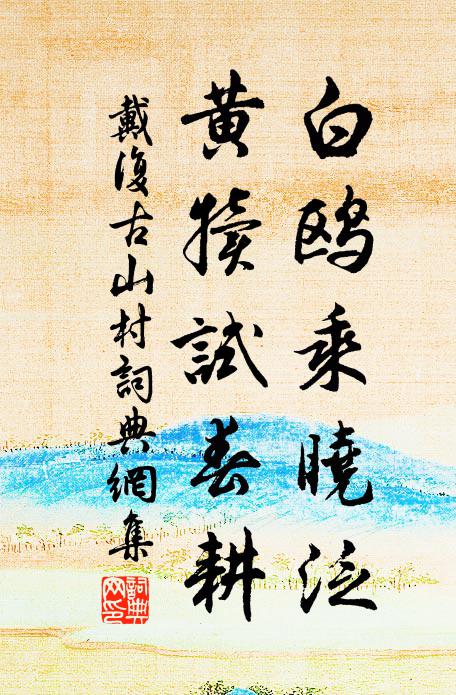 白鸥乘曉泛
黃犢試春耕
戴復古山村詞典網集
詞典網印